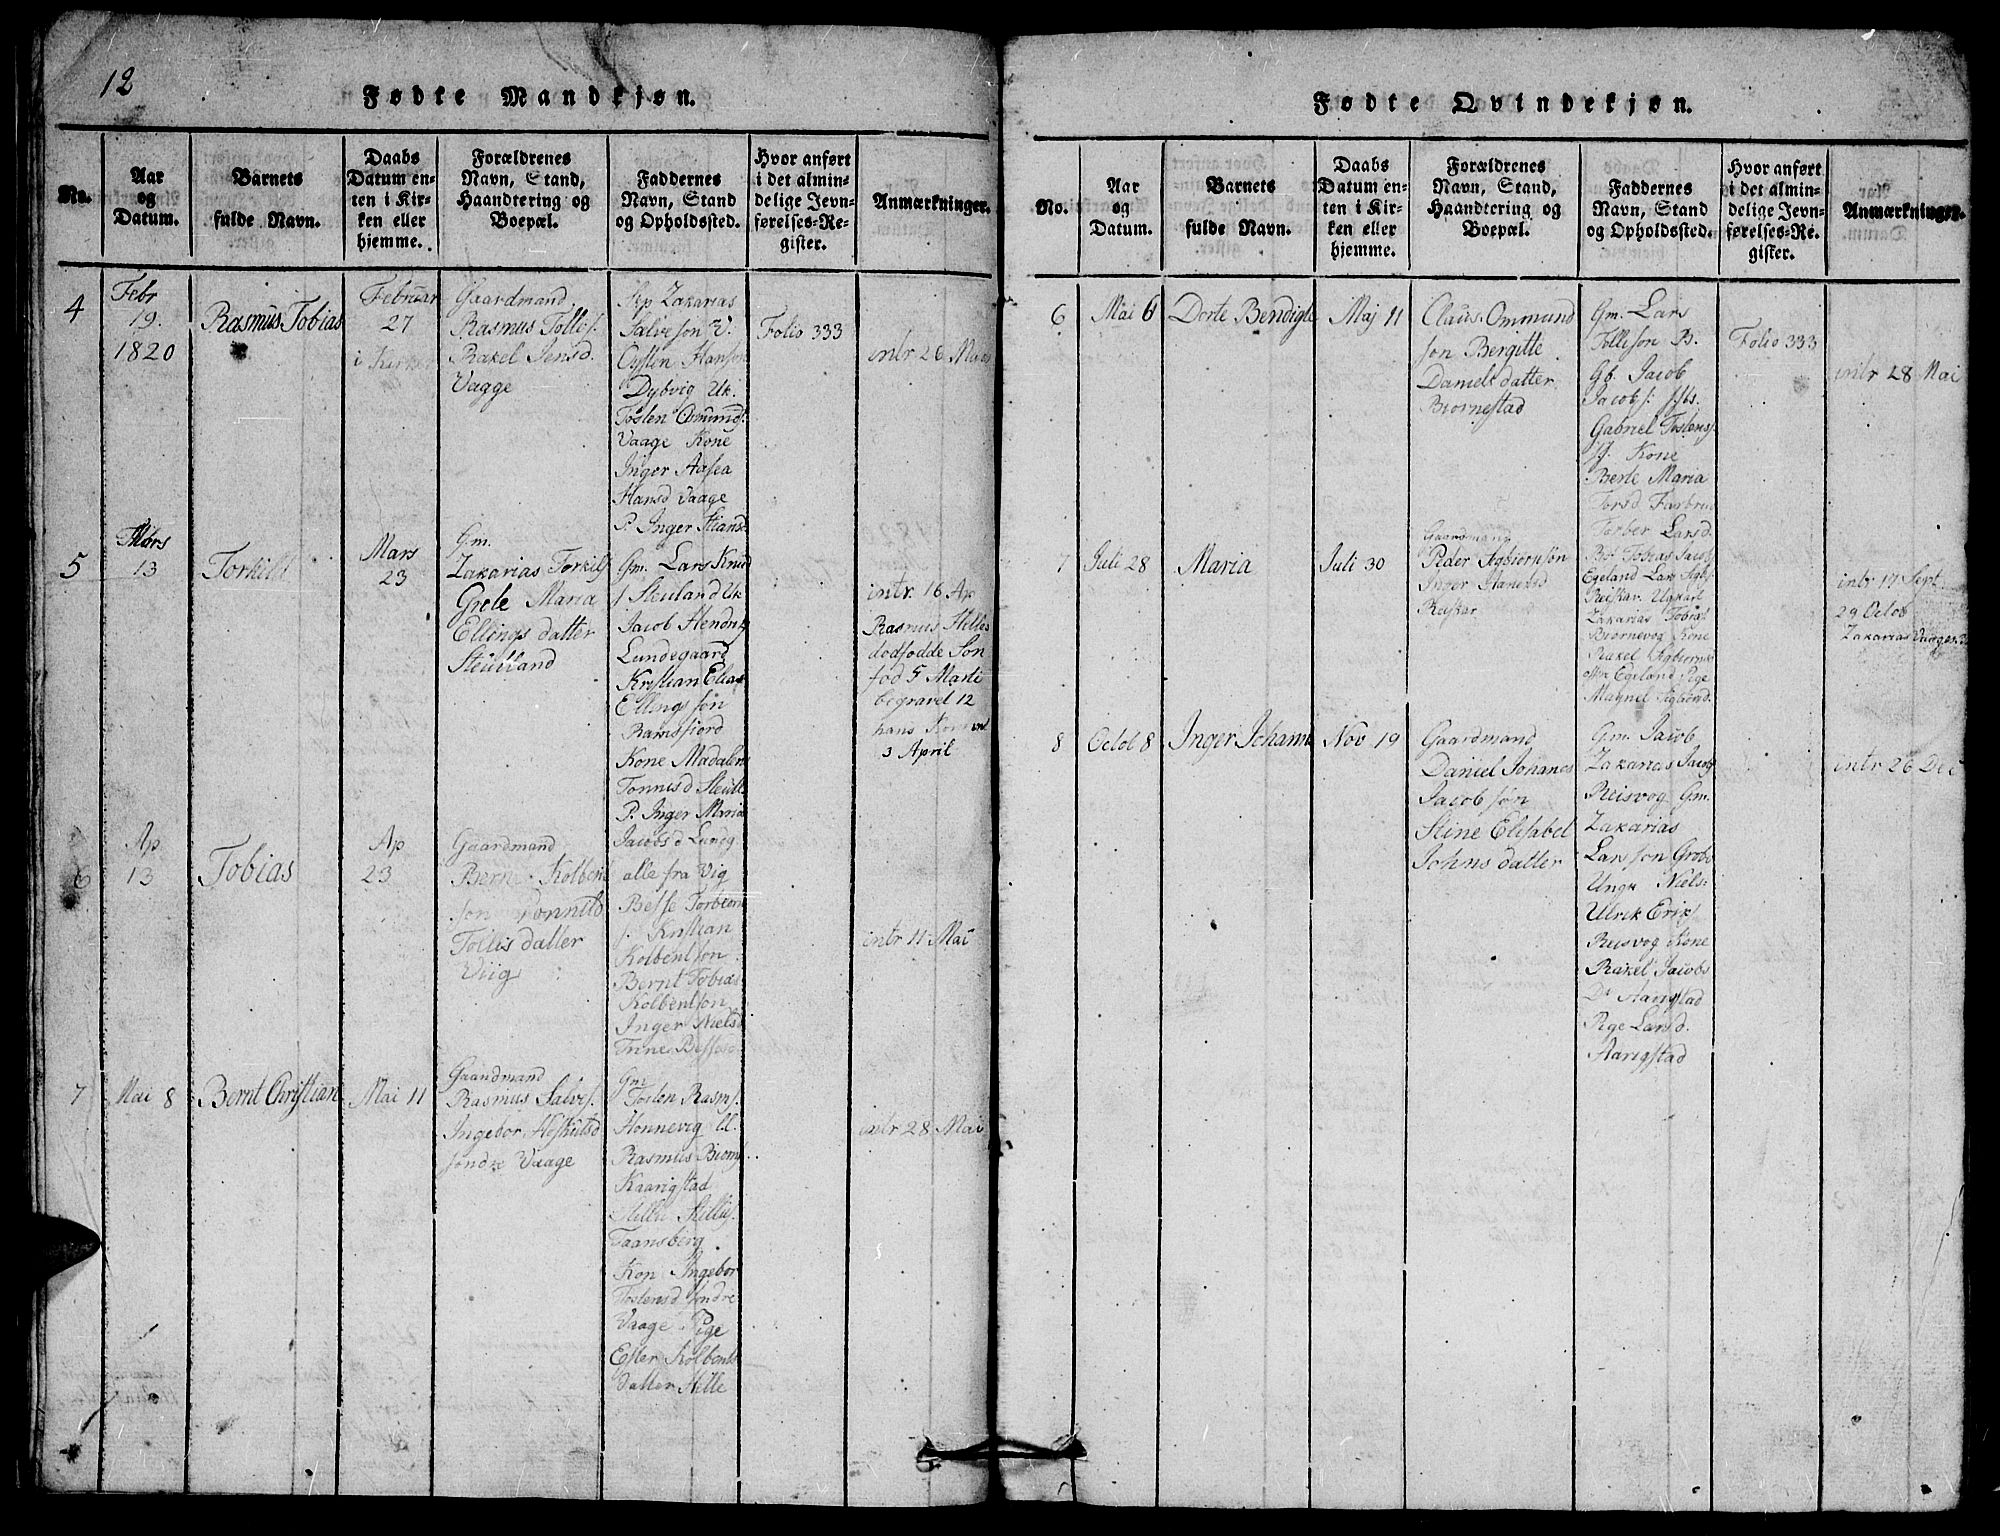 12
Fødte Mandkjøn.
No.
Aar
og
Datum.
Barnets
fulde Navn.
Daabs
Datum en-
ten i Kir-
ken eller
hjemme.
Forældrenes
Navn, Stand,
Haandtering og
Boepæl.
Faddernes
Navn, Stand
og Opholdssted.
Hvor anført
i det almin-
delige Jevn-
førelses-Re-
gister.
Anmærkninger.
4
Febr
19.
1820
Rasmus Tobias
Februar
27
i Kirken
Gaardmand
Rasmus Tolles.
Rakel Jensd.
Vaage
Zakarias
Salveson V.
Oysten Hanson
Dybvig Uk.
Tosten Omund
Vaage Kone
Inger Aasea
Hansd Vaage
P. Inger Stiansd
Folio 333
intr 26 Mars
5
Mars
13
Torkild
Mars
23
Gm.
Zakarias Torkils
Grete Maria
Ellings datter
Steülland
Gm. Lars Knud
s. Steuland Uk
Jacob Hendriks
Lundegaard
Kristian Elias
Ellingsøn
Ramsfiord
Kone Madalen
Tonnesd Steull
P. Inger Maria
Jacobsd Lundg
intr. 16 Ap
Rasmus Stilles
dodfodde Søn
fod 5 Marti
begravet 12
hans Kone int
3 April
6
Ap
13
Tobias
Ap
23
Gaardmand
Bernt Kolbent
son Tonnesd
Tollis datter
Viig
alle fra Vig
Besse Torbiorn
s. Kristian
Kolbentson
Bernt Tobias
Kolbentson
Inger Nielsd
Trine Bessesd
intr 11 Mai
7
Mai 8
Bernt Christian
Mai 11
Gaardmand
Rasmus Salves.
Ingebor Aslextsd
søndre Vaage
Gm
Tosten Rasms.
Honnevig U.
Rasmus Biorn
Kaarigstad
Stille Stilles.
Taansberg
Kon Ingebor
Tostensd søndre
Vaage Pige
Ester Kolbents
datter Stille
intr 28 Mai
Fødte Qvindekjøn.
No.
Aar
og
Datum.
Barnets
fulde Navn.
Daabs
Datum en-
ten i Kir-
ken eller
hjemme.
Forældrenes
Navn, Stand,
Haandtering og
Boepæl.
Faddernes
Navn, Stand
og Opholdssted.
Hvor anført
i det almin-
delige Jevn-
førelses-Re-
gister.
Anmærkninger.
6
Mai 6
Dorte Bendigte
Maj 11
Claus Ommund
søn Bergitte
Daniels datter
Biornestad
Gm. Lars
Tollisøn B.
Gb. Jacob
Jacobs.
Gabriel Tostens.
Kone
Berte Maria
Torsd
Torber Larsd.
Folio 333
intr 28 Mai
7
Juli 28
Maria
Juli 30
Gaardmand
Peder Sigbiørnsøn
Inger Hanensd
Reiskar
Tobias Jacobs
Egeland Lars Sigb.
Reiskav. Ungkarl
Zakarias Tobias
Biørnevog Kone
Rakel Sigbiorns
Egeland Pige
Magnel Sigbiornd.
intr 17 Sept
29 Octob
Zakarias Vaage
8
Octob 8
Inger Johanne
Nov 19
Gaardmand
Daniel Johanes
Jacobsøn
Stine Elisabet
Johns datter
Gm. Jacob
Zakarias Jacobs
Reisvog Gm.
Zakarias
Larsson Grobs
Ungk Niels
Ulrik Eriks
Reisvog Kone
Rakel Jacobs
Dr Aarigstad
Pige Larsd.
Aarigstad
intr 26 Dec